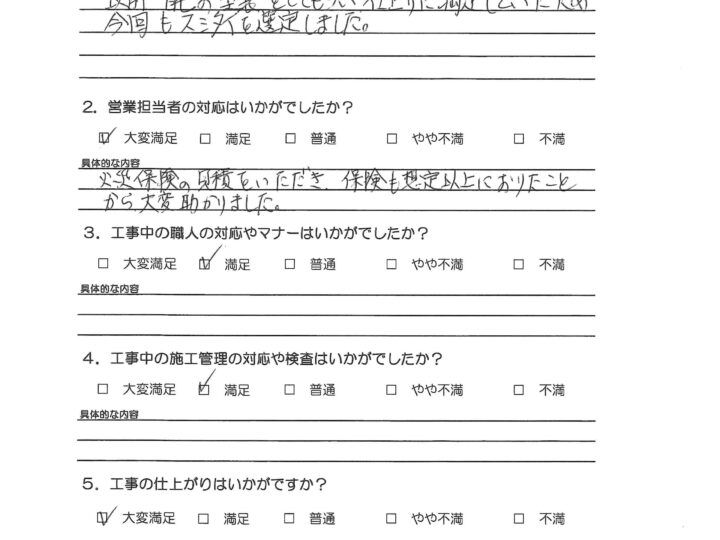 今回もスミタイを選定しました。
2．営業担当者の対応はいかがでしたか？
☑ 大変満足 □ 満足 □ 普通 □ やや不満 □ 不満
具体的な内容
火災保険の見積をいただき、保険も想定以上におりたこと
から大変助かりました。
3．工事中の職人の対応やマナーはいかがでしたか？
□ 大変満足 ☑ 満足 □ 普通 □ やや不満 □ 不満
具体的な内容
4．工事中の施工管理の対応や検査はいかがでしたか？
□ 大変満足 ☑ 満足 □ 普通 □ やや不満 □ 不満
具体的な内容
5．工事の仕上がりはいかがですか？
☑ 大変満足 □ 満足 □ 普通 □ やや不満 □ 不満